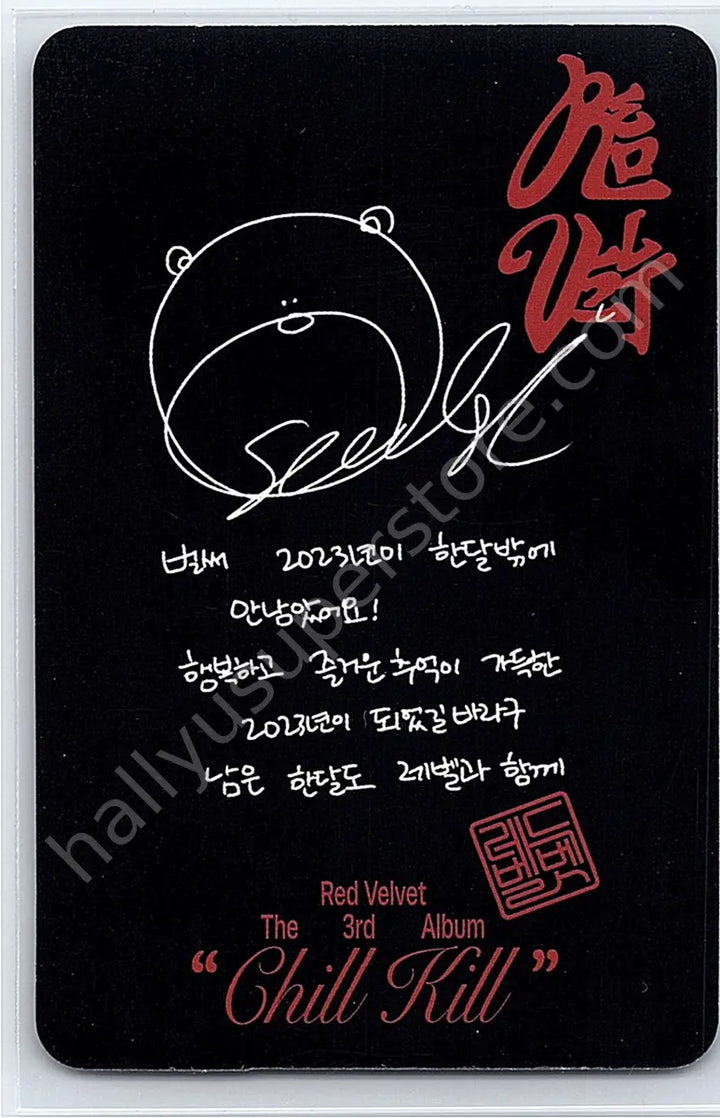 Seulgi
벌써 2023년이 한달밖에
안남았어요!
행복하고 즐거운 추억이 가득한
2023년이 되었길 바라구
남은 한달도 레벨과 함께
레드
벨벳
Red Velvet
The 3rd Album
“Chill Kill”
hallyusuperstore.com